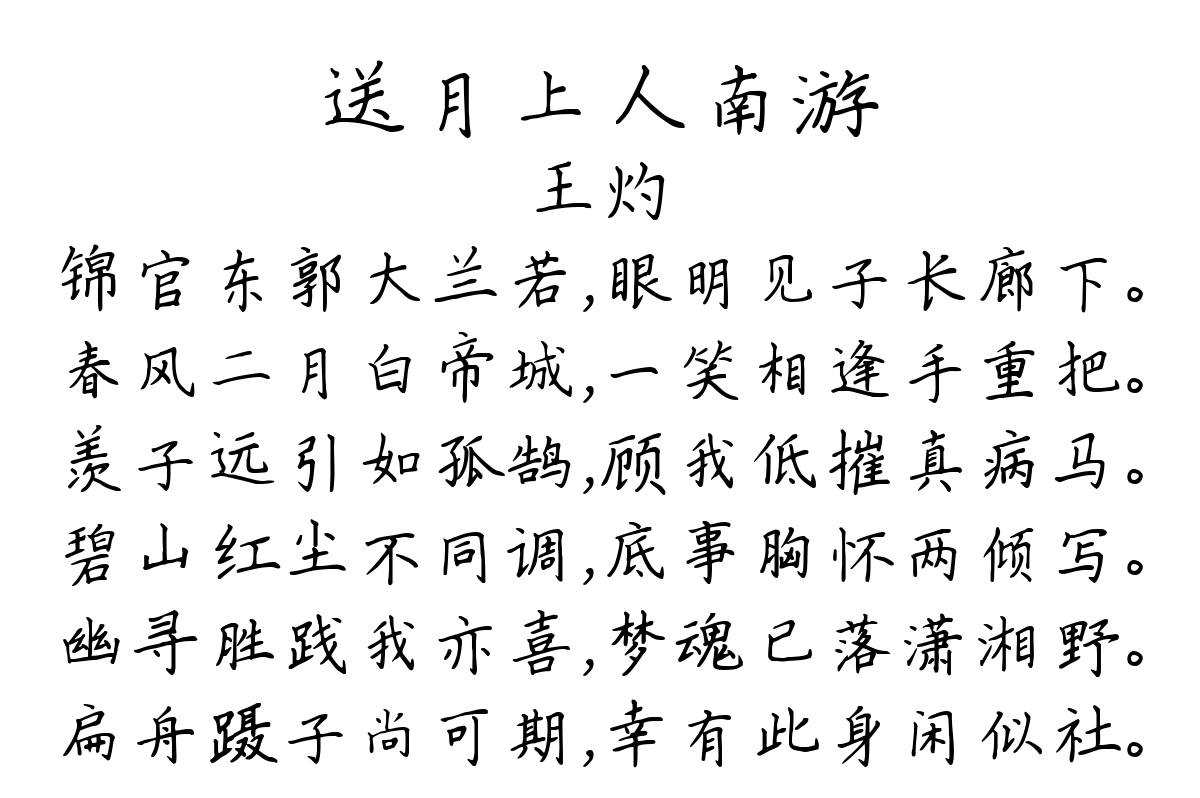 送月上人南游
王灼
锦官东郭大兰若,眼明见子长廊下。
春风二月白帝城,一笑相逢手重把。
羡子远引如孤鹄,顾我低摧真病马。
碧山红尘不同调,底事胸怀两倾写。
幽寻胜践我亦喜,梦魂已落潇湘野。
扁舟蹑子尚可期,幸有此身闲似社。